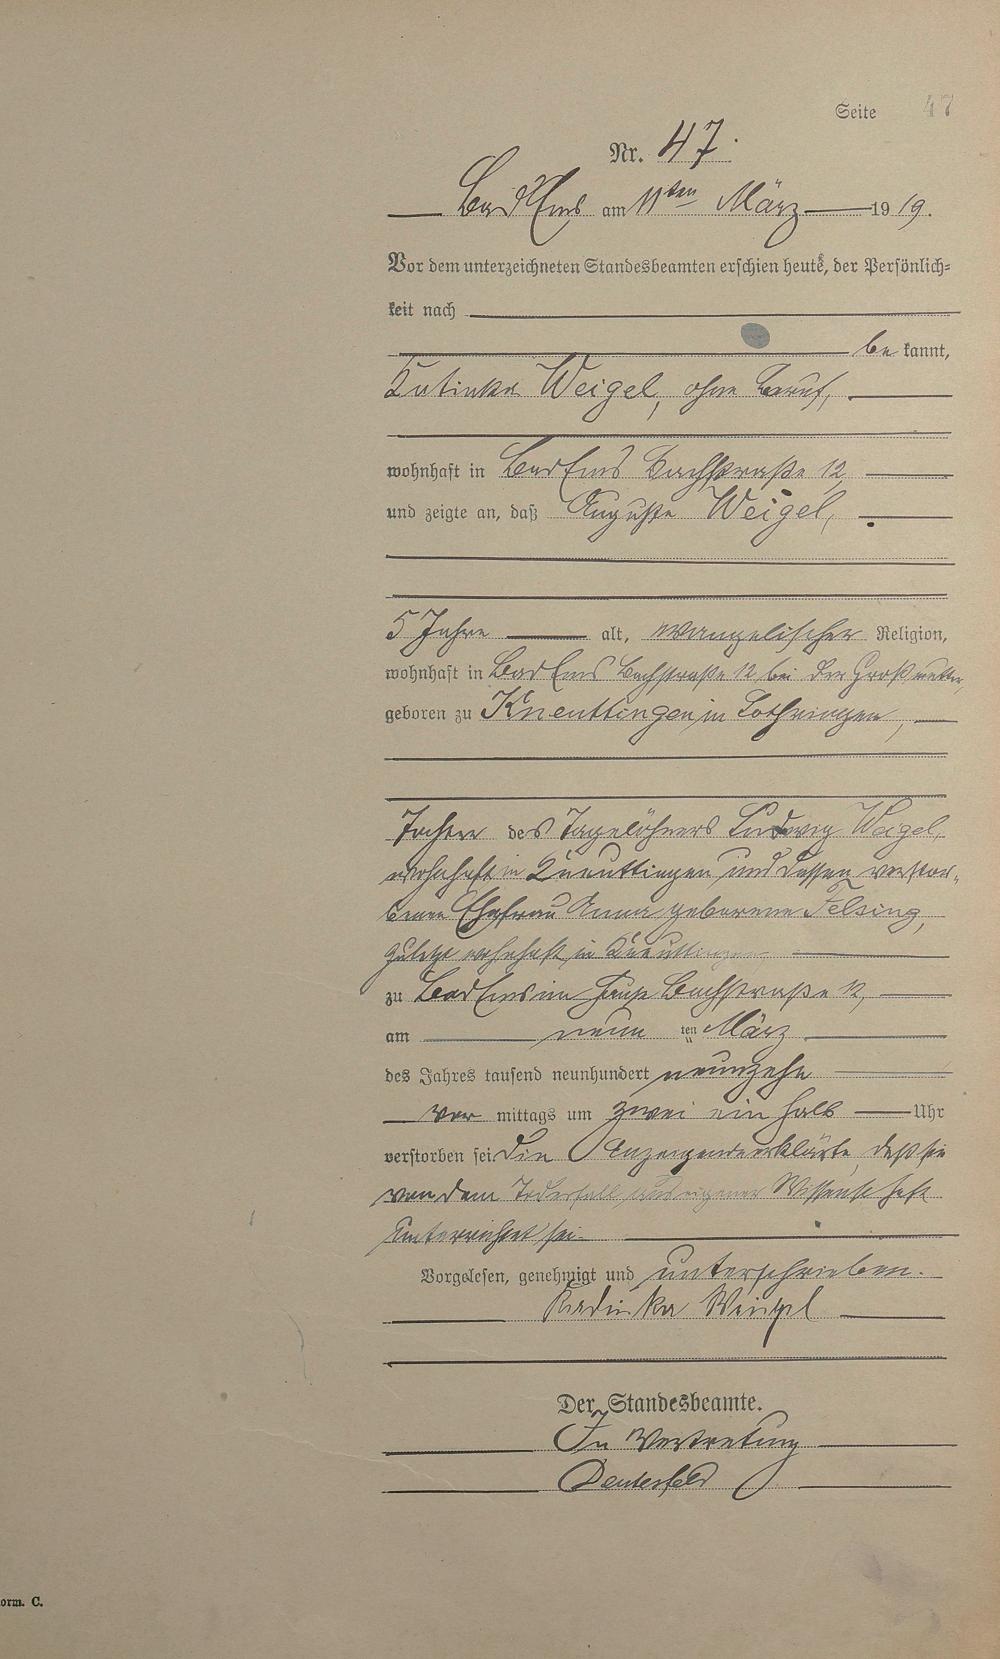 Seite 47
Nr. 47.
Bad Ems am 11ten März 1919.
Vor dem unterzeichneten Standesbeamten erschien heute, der Persönlich-
keit nach
bekannt,
Katinka Weigel, ohne Beruf,
wohnhaft in Bad Ems Bachstraße 12,
und zeigte an, daß Auguste Weigel,
5 Jahre alt, evangelischer Religion,
wohnhaft in Bad Ems Bachstraße 12 bei der Großmutter,
geboren zu Kneuttingen in Lothringen,
Tochter des Tagelöhners Ludwig Weigel,
wohnhaft in Kneuttingen und dessen verstor-
benen Ehefrau Anna geborene Felsing,
zuletzt wohnhaft in Kneuttingen
zu Bad Ems im Hause Bachstraße 12,
am neun ten März
des Jahres tausend neunhundert neunzehn
vor mittags um zwei ein halb Uhr
verstorben sei. Die Anzeigende erklärte, daß sie
von dem Todesfall aus eigener Wissenschaft
unterrichtet sei.
Vorgelesen, genehmigt und unterschrieben.
Kadinka Weigel
Der Standesbeamte.
In Vertretung
orm. C.